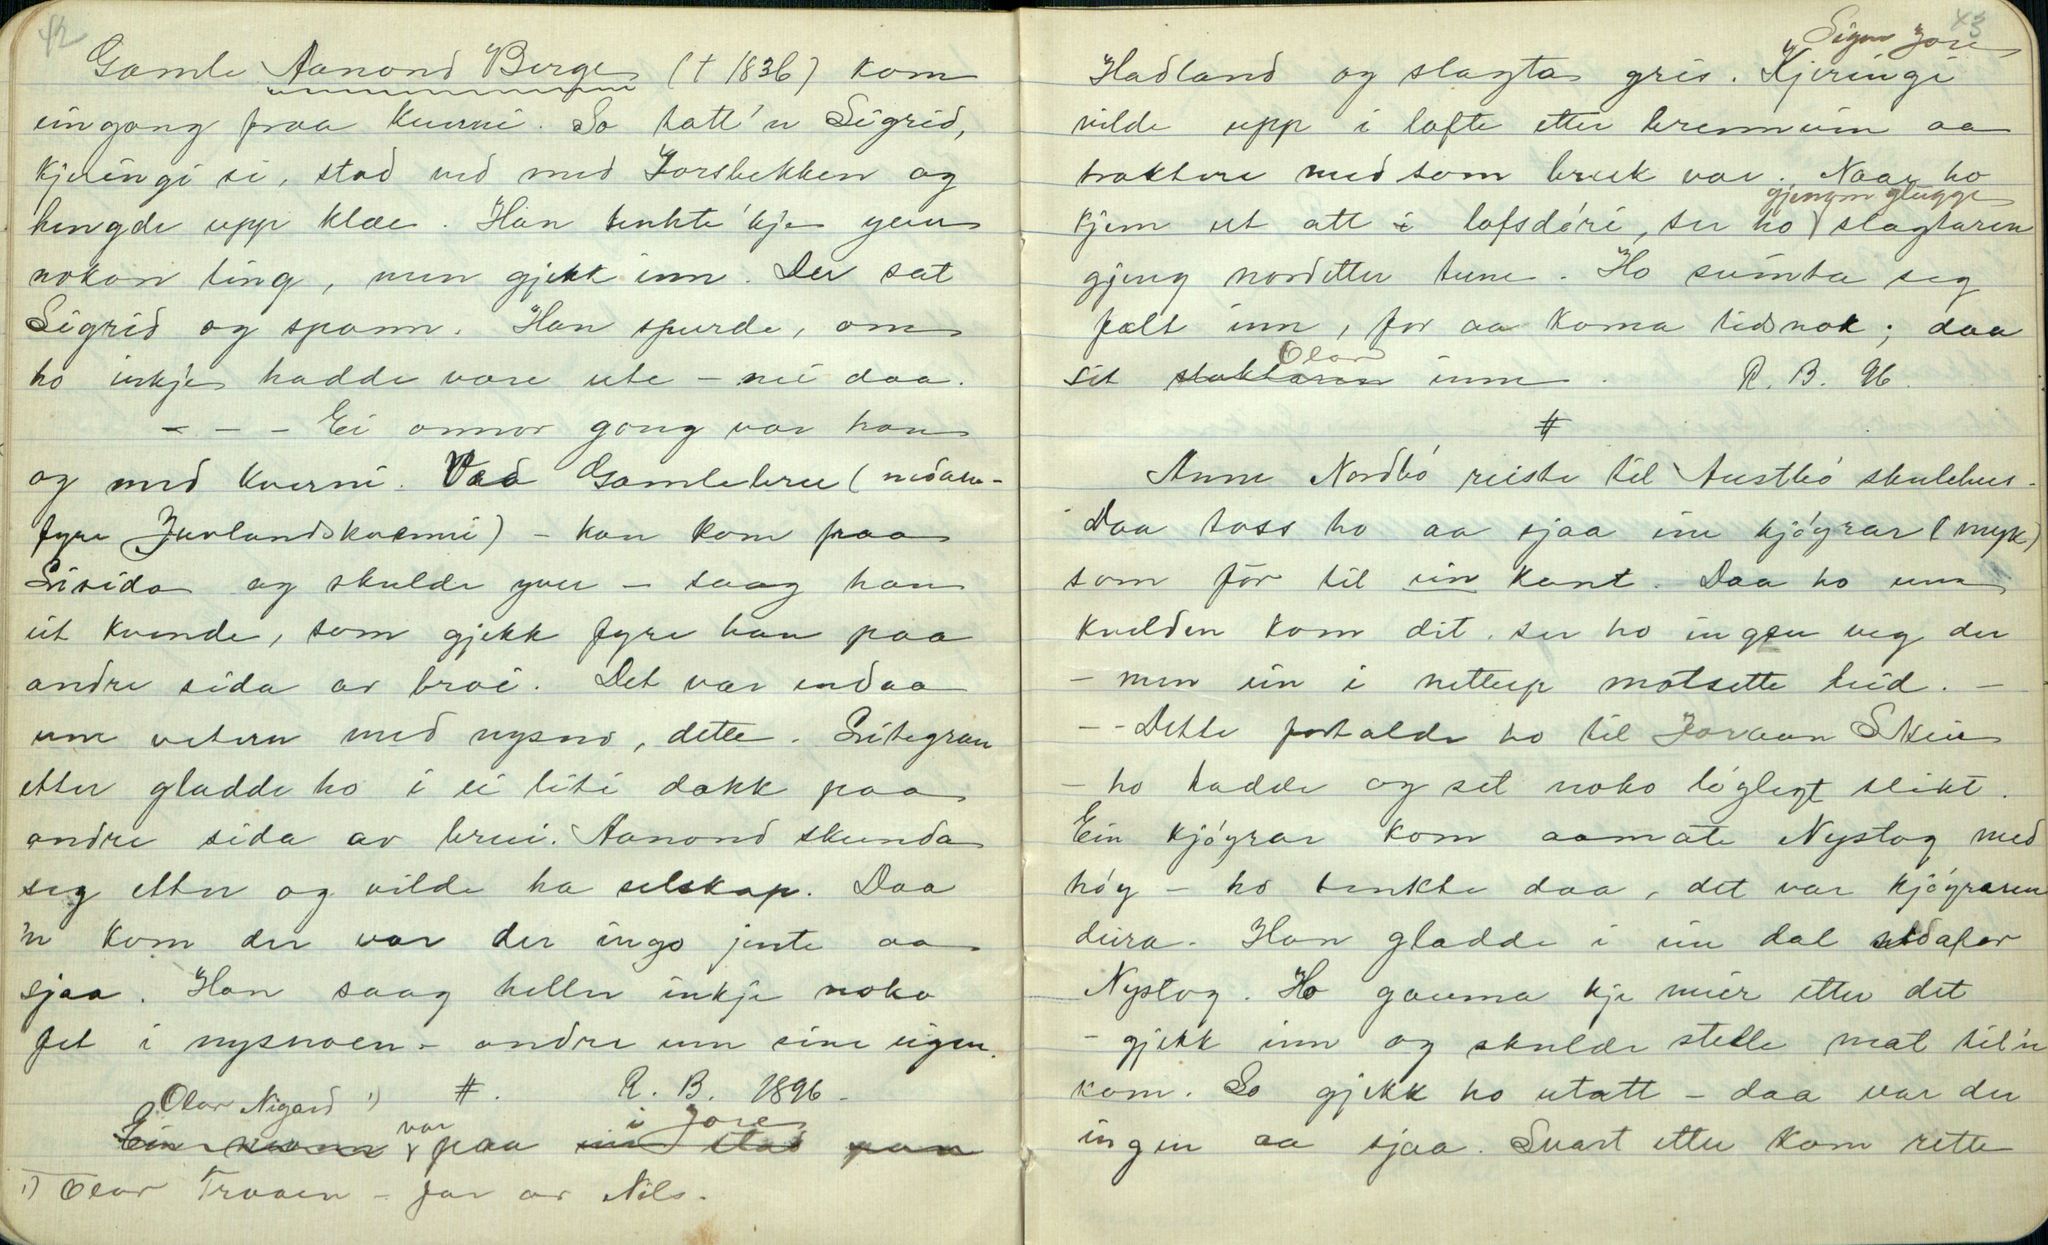 42
Gamle Aanond Berge († 1836) kom
eingong fraa kverni. So tatt'n Sigrid,
kjeringi si, stod ved med Jorsbekken og
hengde upp klæe. Han tenkte 'kje yver
nokon ting, men gjekk inn. Der sat
Sigrid og spann. Han spurde, om
ho inkje hadde vore ute – nei daa.
– – – Ei onnor gong var han
og med kverni. Ved Gamlebru (nedan-
fyre Juvlandskverni) – han kom fraa
Lisido og skulde yver – saag han
eit kvende, som gjekk fyre han paa
andre sida av broi. Det var endaa
um vetern med nysno, dette. Litegran
etter gladde ho i ei liti dokk paa
andre sida av brui. Aanond skunda
seg etter og vilde ha selskap. Daa
'n kom der var der ingo jente aa
sjaa. Han saag heller inkje noko
fet i nysnoen – andre enn sine eigne.
#. R. B. 1896 –
Olav Nigard 1) var i Jore
Ein mann paa ein stad paa
1) Olav Traaen – far av Nils.
43
Signe Jore
Hadland og slagta gris. Kjeringi
vilde upp i lofte etter brennvin aa
traktere med som bruk var. Naar ho
gjenom glugge
kjem ut att i lofsdøri, ser ho slagtaren
gjeng nordetter tune. Ho svinta seg
fælt inn, for aa koma tidsnok; daa
Olav
sit slaktaren inne. R. B. 96.
#
Anne Nordbø reiste til Austbø skulehus.
Daa toss ho aa sjaa ein kjøyrar (myk)
som før til ein kant. Daa ho um
kvelden kom dit ser ho ingen veg der
– men ein i nettup motsette leid. –
– – Dette fortalde ho til Joraan Skeie
– ho hadde og set noko løglegt slikt.
Ein kjøyrar kom aamote Nystog med
høy – ho tenkte daa, det var kjøyraren
deira. Han gladde i ein dal nedafor
Nystog. Ho gauma kje meir etter det
– gjekk inn og skulde stelle mat til'n
kom. So gjekk ho utatt – daa var der
ingen aa sjaa. Snart etter kom rette